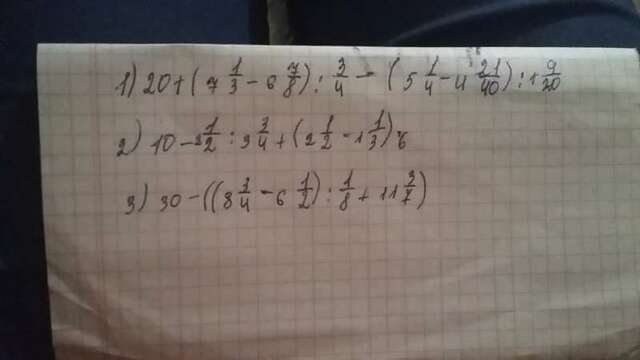 1) 20 + (7 1/3 - 6 7/8) : 3/4 - (5 1/4 - 4 21/40) : 1 9/20
2) 10 - 2 1/2 : 3 3/4 + (2 1/2 - 1 1/3) 6
3) 30 - ((8 3/4 - 6 1/2) : 1/8 + 11 3/7)